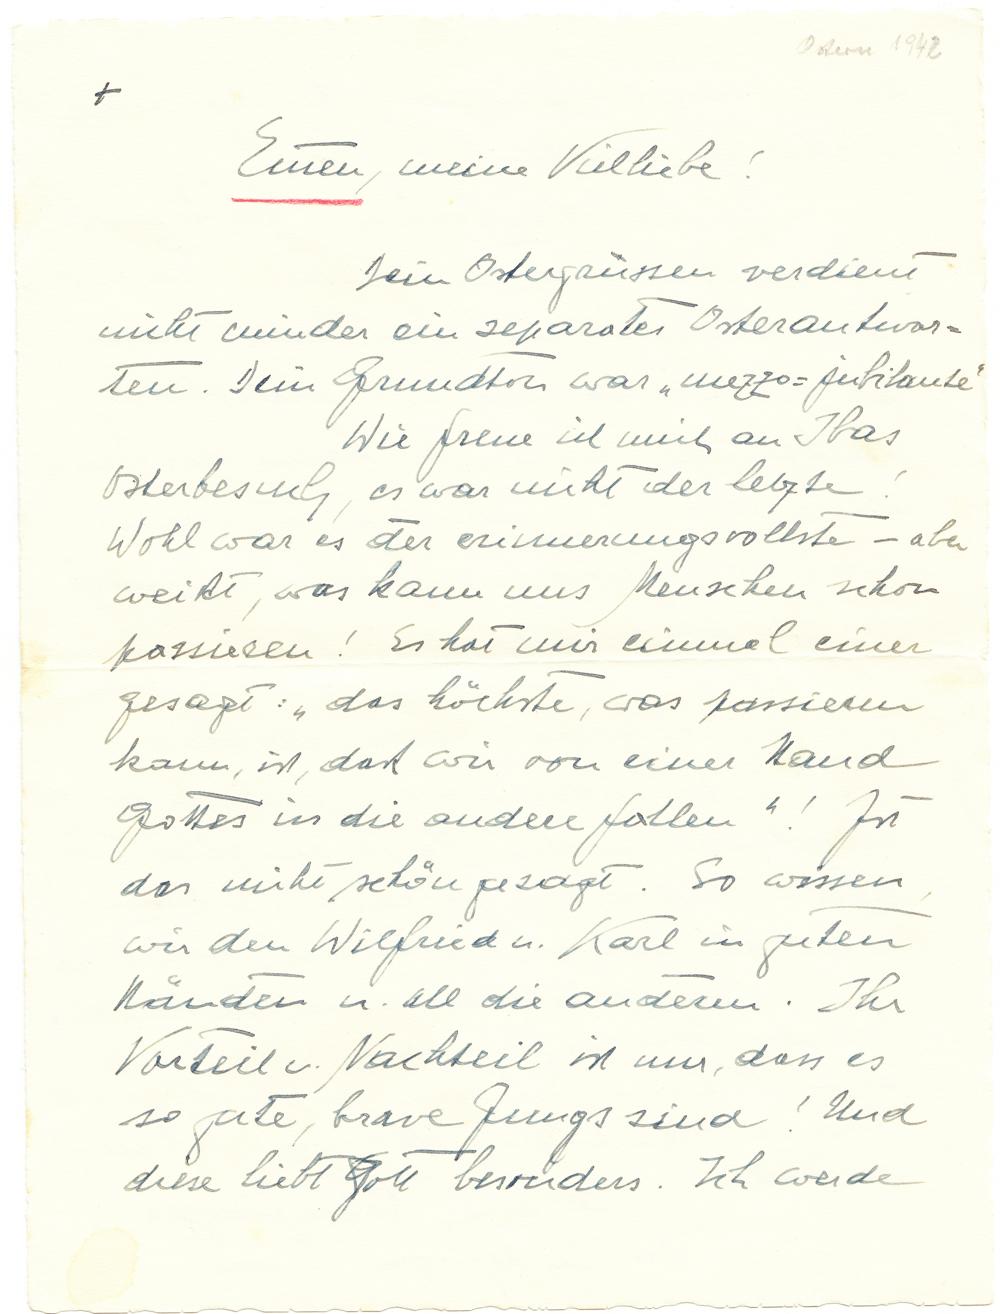 Ostern 1942
+
Emen, meine Vielliebe!
Dein Ostergrüssen verdient
nicht minder ein separates Osterantwor=
ten. Dein Grundton war „mezzo=jubilante"
Wie freue ich mich an Ibas
Osterbesuch, es war nicht der letzte!
Wohl war es der erinnerungsvollste – aber
weißt, was kann uns Menschen schon
passieren! Es hat mir einmal einer
gesagt: „das höchste, was passieren
kann, ist, daß wir von einer Hand
Gottes in die andere fallen"! Ist
das nicht schön gesagt. So wissen
wir den Wilfried u. Karl in guten
Händen u. all die anderen. Ihr
Vorteil u. Nachteil ist nur, dass es
so gute, brave Jungs sind! Und
diese liebt Gott besonders. Ich werde